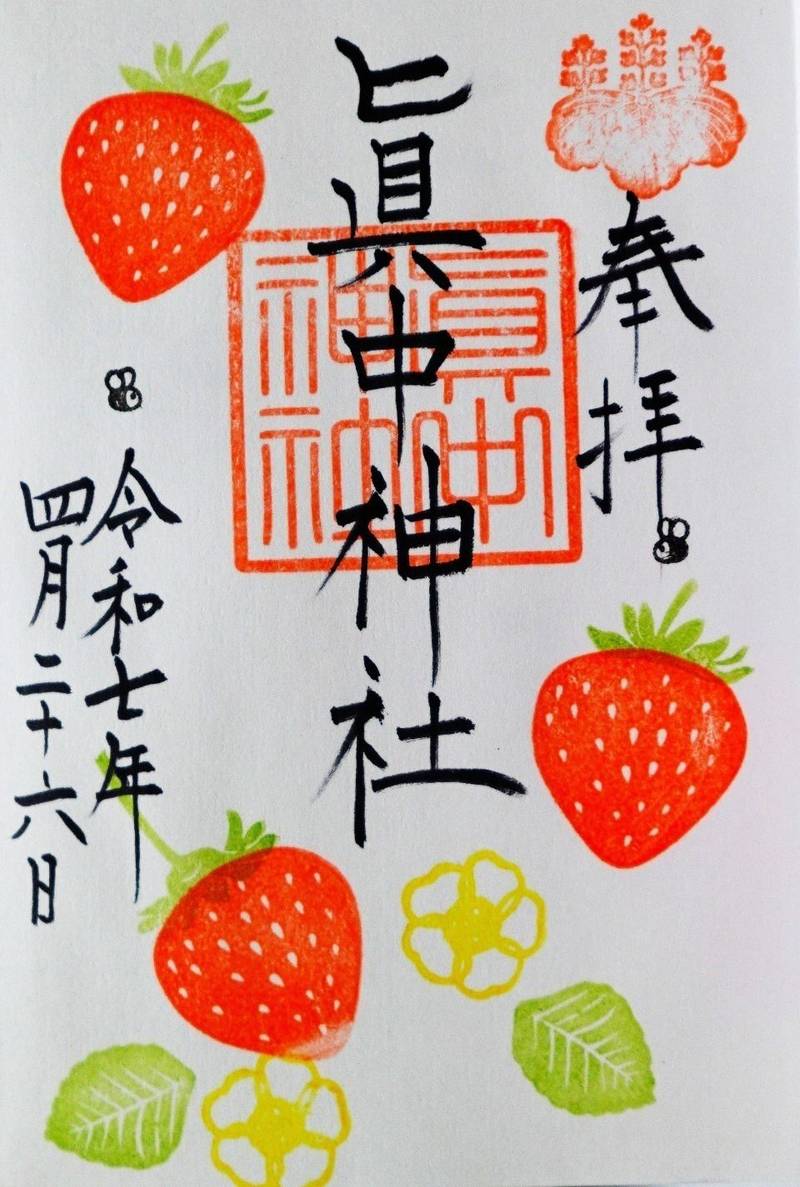 奉拝
眞中神社
眞中
神社
令和七年
四月二十六日